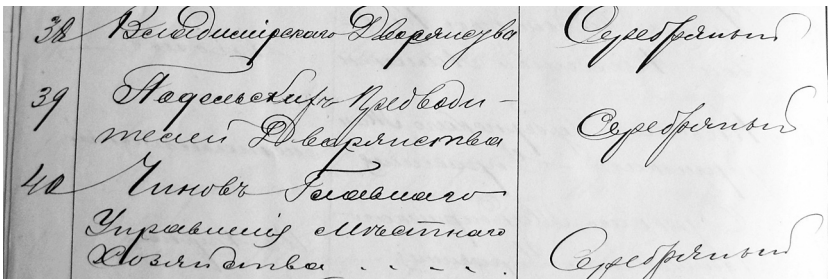 38 Владимірскаго Дворянства Серебряный
39 Падольскихъ Предводи-
телей Дворянства Серебряный
40 Чиновъ Главнаго
Управленія Мѣстнаго
Хозяйства . . . . . Серебряный